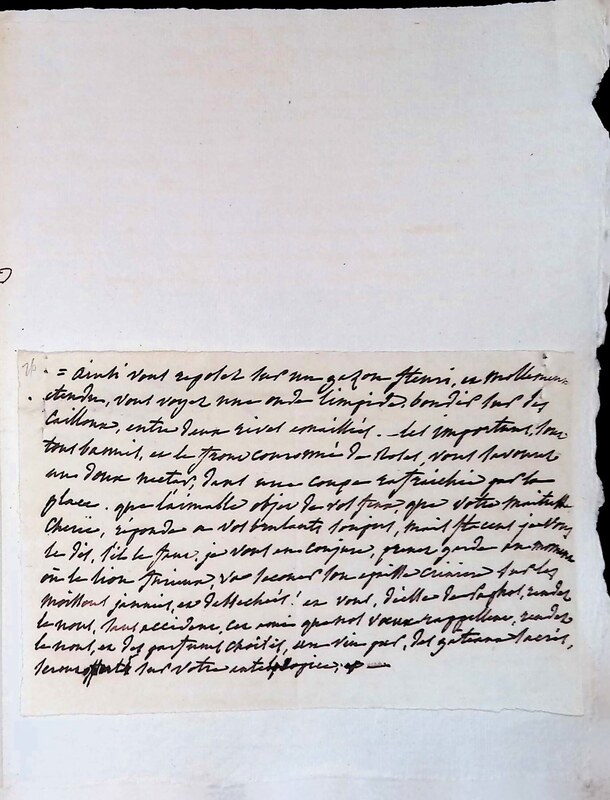 26
= ainsi vous reposez sur un gazon fleuri, et mollement
etendu, vous voyez une onde limpide, bondir sur des
cailloux, entre deux rives emaillées. les importuns, sont
tous bannis, et le front couronné de Roses, vous savourez
un doux nectar, dans une coupe rafraichie par la
glace. que l'aimable objet de vos feux que votre maitresse
cherie, réponde a vos brulants soupirs, mais Plecent je vous
le dis, s'il le faut, je vous en conjure, prenez garde au moment
où le lion furieux va secouer son epaisse criniere sur les
moissons jaunies, et dessechées! et vous, déesse de Paphos, rendez
le nous, sans accident, cet ami que nos vœux rappellent, rendez
le nous, et des parfums choisis, un vin pur, des gâteaux sacrés,
seront offerts sur votre autel propice; =